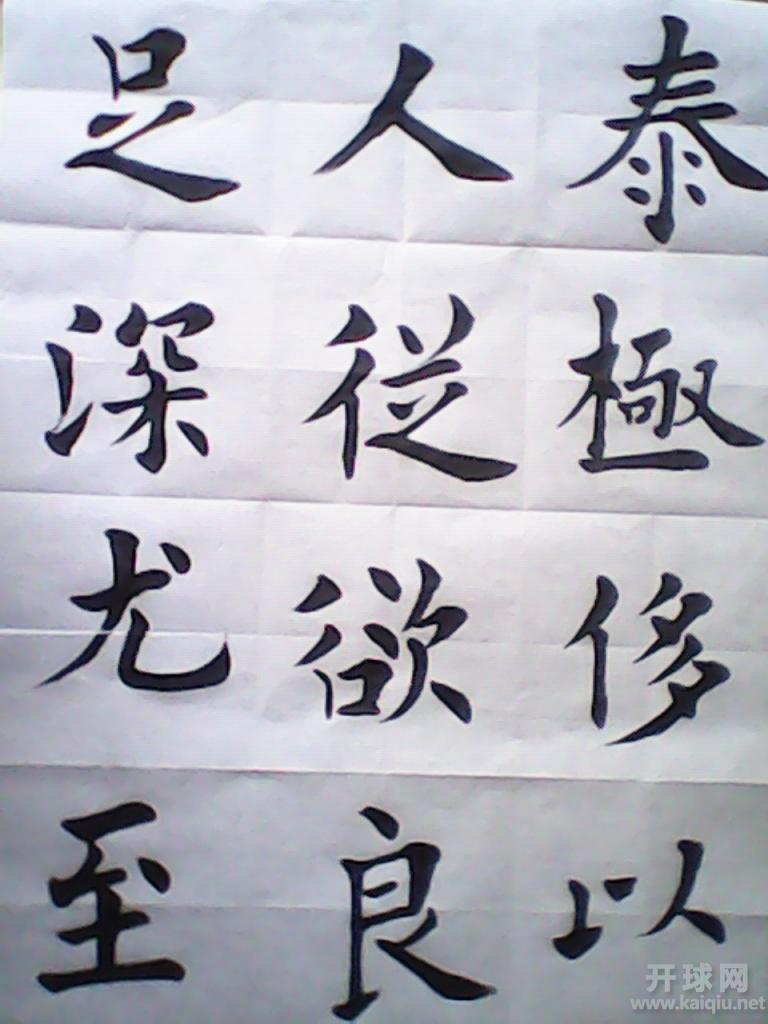 泰極侈以
人從欲良
足深尤至
开球网
www.kaiqiu.net